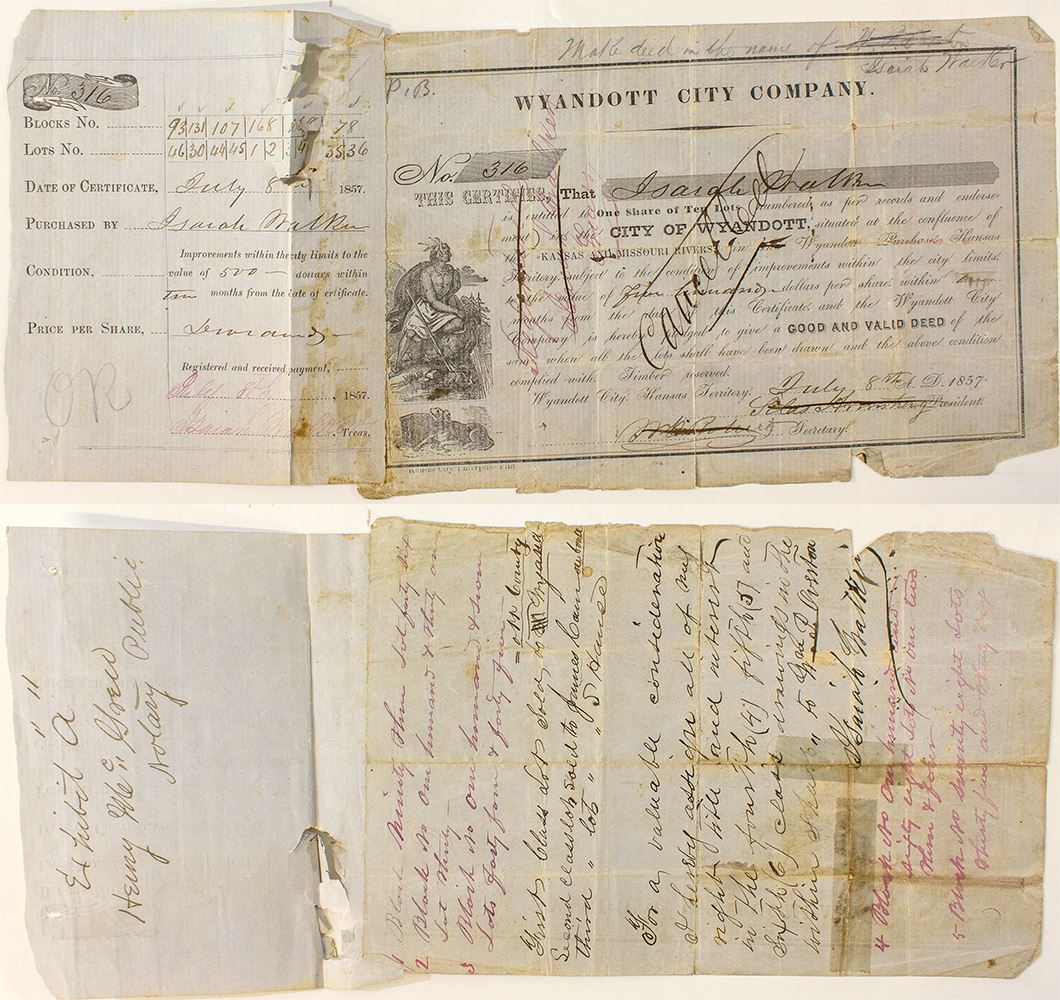 Make deed in the name of
Isaiah Walker
P. B.
No. 316
BLOCKS No. 93 131 107 168 78
LOTS No. 46 30 44 45 1 2 3 4 35 36
DATE OF CERTIFICATE, July 8th, 1857.
PURCHASED BY Isaiah Walker
CONDITION. Improvements within the city limits to the
value of 500 dollars within
ten months from the date of certificate.
PRICE PER SHARE,
Registered and received payment,
July 8th, 1857.
Isaiah Walker, Treas.
WYANDOTT CITY COMPANY.
No. 316
THIS CERTIFIES, That Isaiah Walker
is entitled to One Share of Ten Lots numbered as per records and endorse-
ment) in the CITY OF WYANDOTT, situated at the confluence of
the KANSAS AND MISSOURI RIVERS, in the Wyandott Purchase, Kansas
Territory, subject to the condition of improvements within the city limits,
to the value of Five Hundred dollars per share, within
months from the date of this Certificate, and the Wyandott City
Company is hereby pledged to give a GOOD AND VALID DEED of the
same when all the lots shall have been drawn and the above condition
complied with. Timber reserved.
Wyandott City, Kansas Territory, July 8th A. D. 1857.
Silas Armstrong President.
Secretary.
Cancelled
Kansas City Enterprise Print
Exhibit A
Henry McC
Notary Public
1 Block Ninety three Lot forty six
2 Block No One hundred & thirty one
Lot Thirty
3 Block No One hundred & seven
Lots forty four & forty five
First Class Lot Sold
Second class lots sold to James
third " lot " " "
For a valuable consideration
I hereby assign all of my
right title and interest
in the fourth (4) fifth (5) and
Sixth (6) class drawings in the
within Share, to
Isaiah Walker
4 Block No One hundred and
sixty eight Lots No one two
three & four
5 Block No Seventy eight Lots
thirty five and thirty six